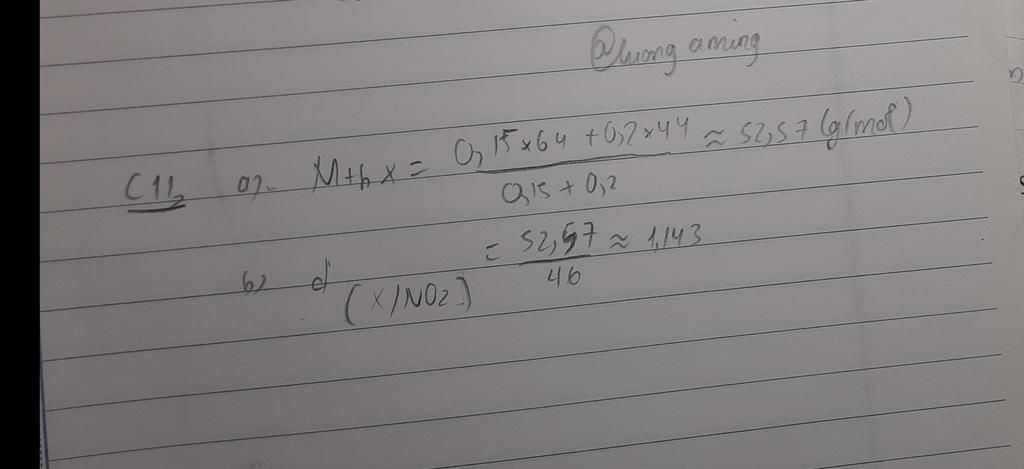 @luong aming
C11, a). M tb X = 0,15 x 64 + 0,2 x 44 / 0,15 + 0,2 ≈ 52,57 (g/mol)
b) d (X/NO2) = 52,57 / 46 ≈ 1,143